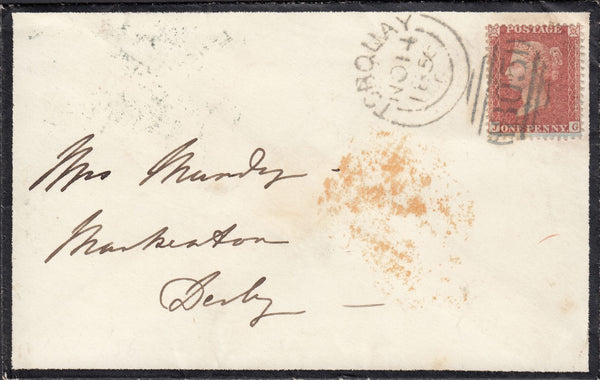 TORQUAY
NO 14
185
POSTAGE
ONE PENNY
G
Mrs Mundy -
Markeaton
Derby -